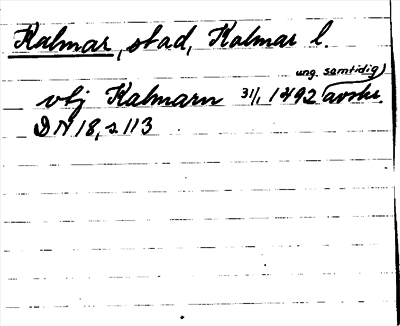 Kalmar, stad, Kalmar l.
ung. samtidig
vbj Kalmarn 31/1 1492 avskr.
DN 18, s 113